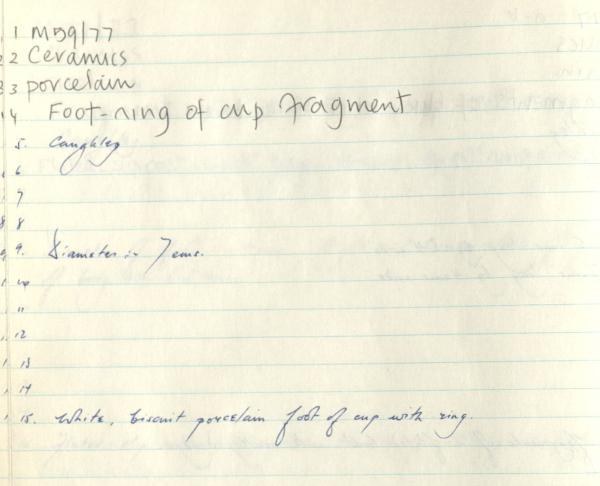 1 M59/77
2 Ceramics
3 porcelain
4 Foot-ring of cup fragment
5. Caughley
6
7
8
9. Diameter is 7 cms.
10
11
12
13
14
15. White, biscuit porcelain foot of cup with ring.